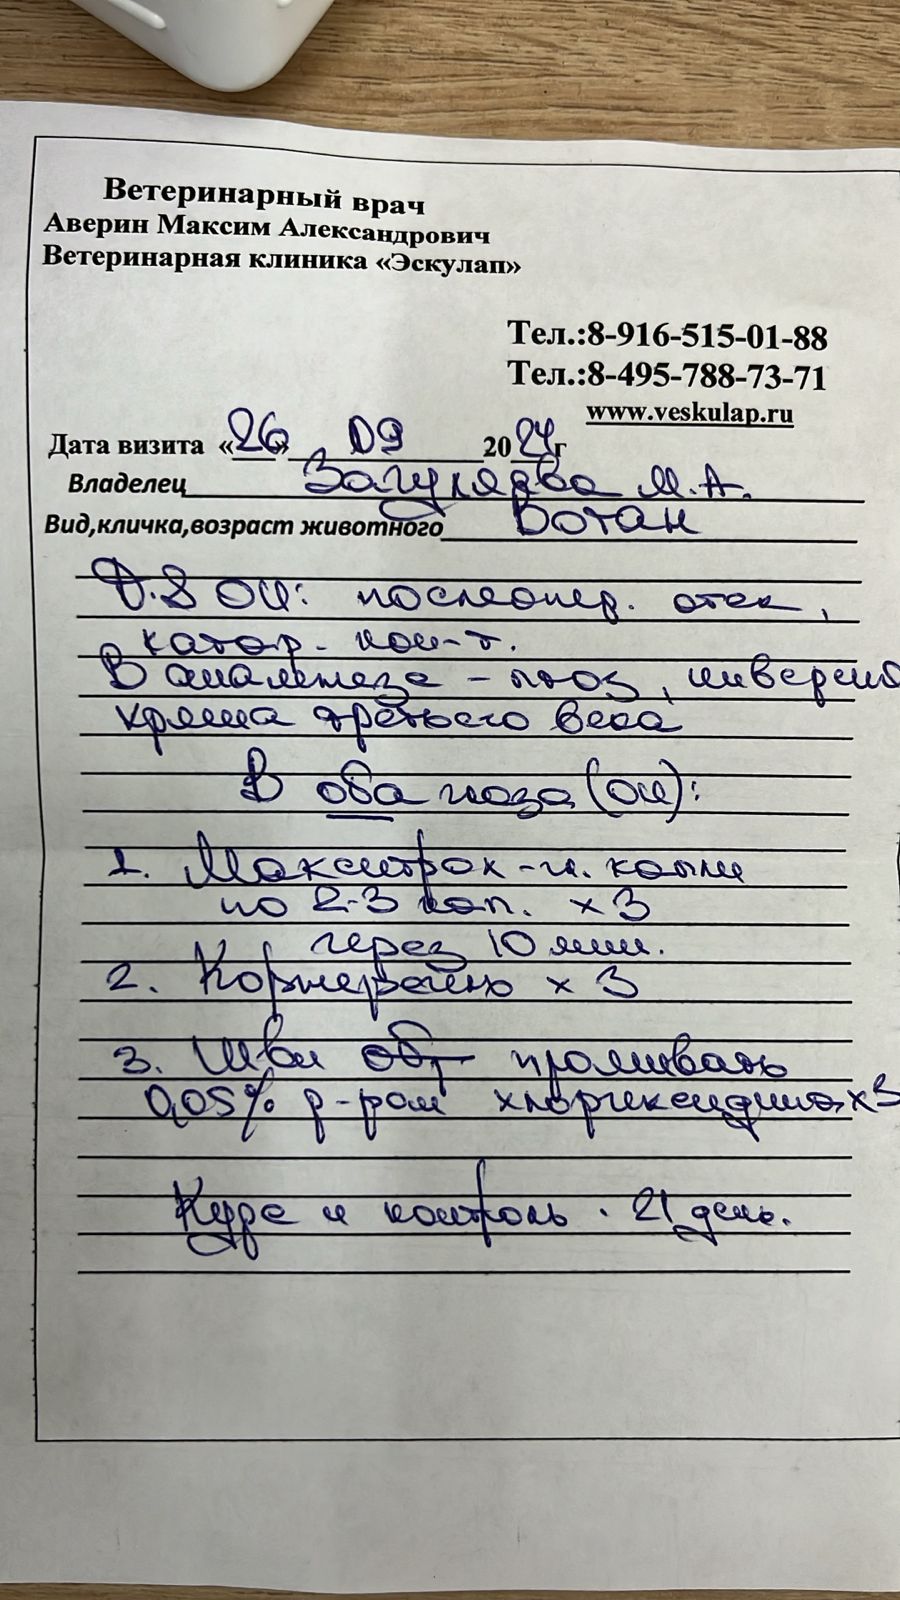 Ветеринарный врач
Аверин Максим Александрович
Ветеринарная клиника «Эскулап»
Тел.:8-916-515-01-88
Тел.:8-495-788-73-71
www.veskulap.ru
Дата визита «26» 09 2024г
Владелец М.А.
Вид,кличка,возраст животного Вотан
D.S OU: послеопер. отек,
катар. кон-т.
В анамнезе - птоз, инверсия
хряща третьего века
В оба глаза (OU):
1. Макситрол - гл. капли
по 2-3 кап. x3
через 10 мин.
2. Корнерегель x 3
3. Швы промывать
0,05% р-ром хлоргексидина x3
Курс и контроль . 21 день.